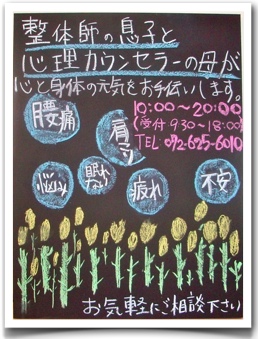 整体師の息子と
心理カウンセラーの母が
心と身体の元気をお手伝いします。
10:00～20:00
(受付 9:30～18:00)
TEL 072-625-6010
腰痛
肩コリ
悩み
眠れない
疲れ
不安
お気軽にご相談下さい